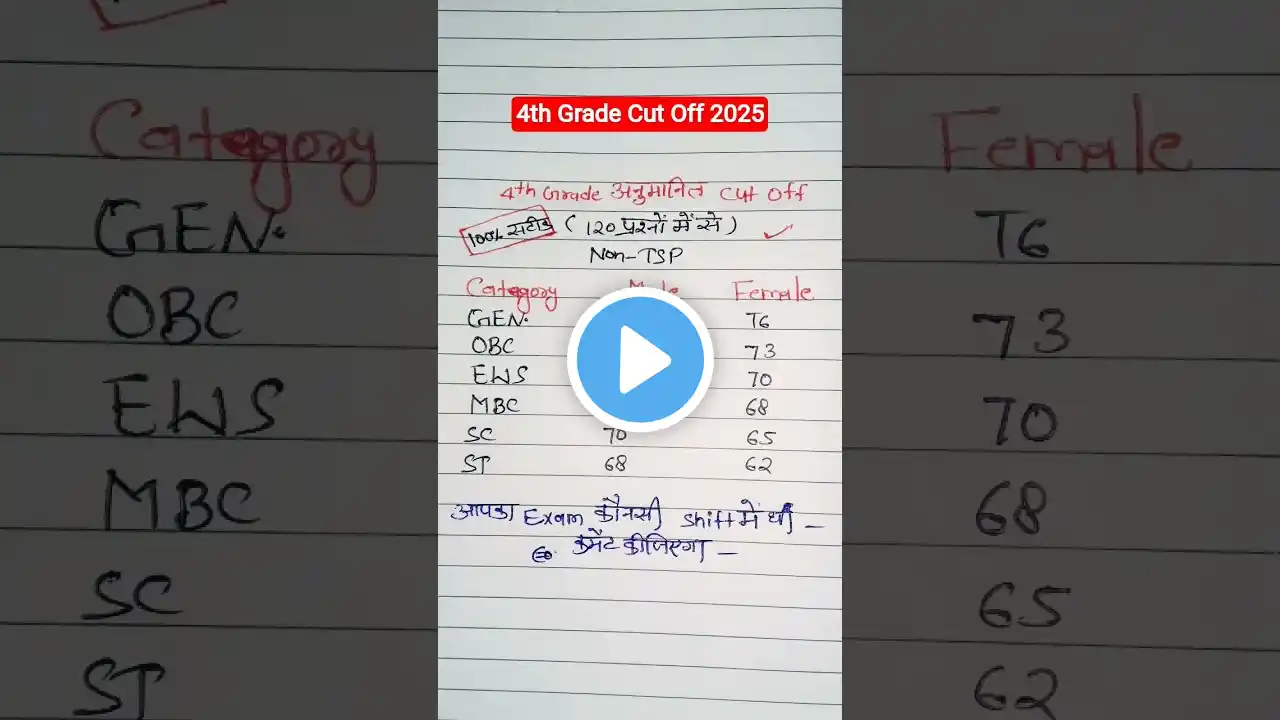 4th Grade Cut Off 2025
4th Grade अनुमानित Cut Off
100% सटीक ( 120 प्रश्नों में से )
Non-TSP
Category Female
GEN. 76
OBC 73
EWS 70
MBC 68
SC 70 65
ST 68 62
आपका Exam कौनसी shift में थी –
कमेंट कीजिएगा –
Category Female
GEN. 76
OBC 73
EWS 70
MBC 68
SC 65
ST 62